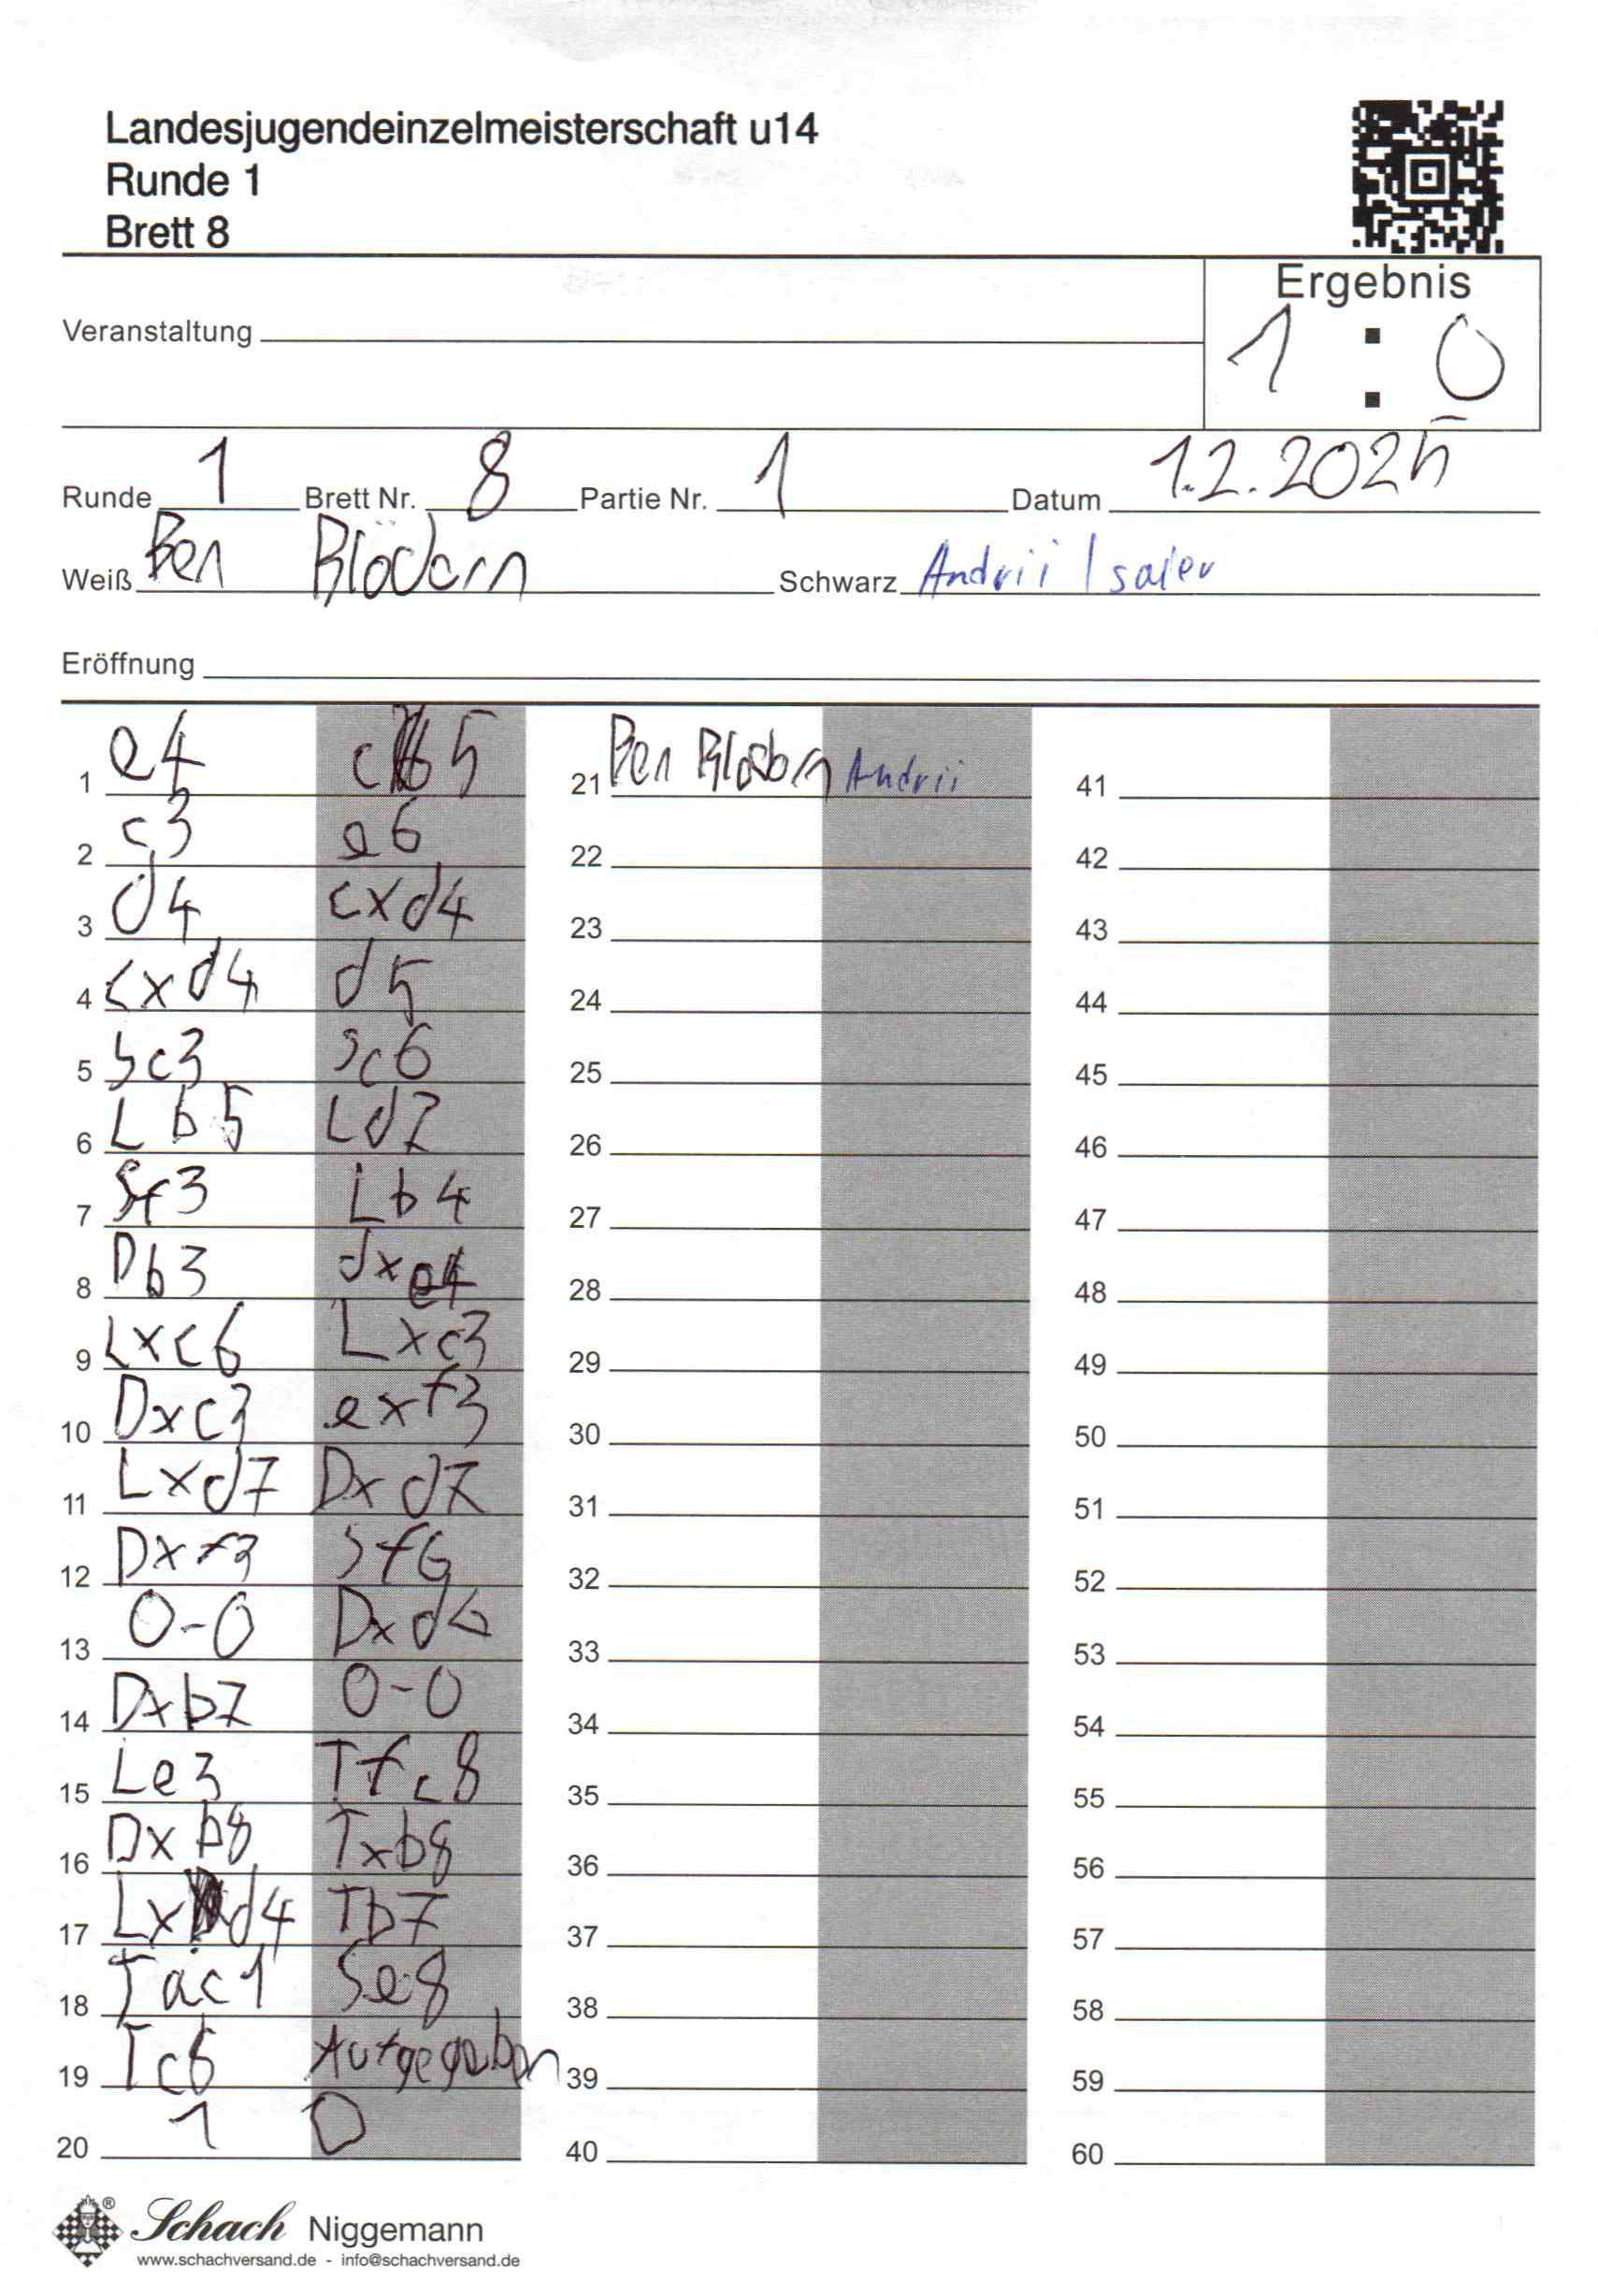 Landesjugendeinzelmeisterschaft u14
Runde 1
Brett 8
Ergebnis
1 : 0
Veranstaltung
Runde 1 Brett Nr. 8 Partie Nr. 1 Datum 1.2.2025
Weiß Ben Blödorn Schwarz Andrii Isaiev
Eröffnung
1 e4 c5 21 Ben Blödorn Andrii 41
2 c3 e6 22 42
3 d4 cxd4 23 43
4 cxd4 d5 24 44
5 Sc3 Sc6 25 45
6 Lb5 Ld7 26 46
7 Sf3 Lb4 27 47
8 Db3 dxe4 28 48
9 Lxc6 Lxc3 29 49
10 Dxc3 exf3 30 50
11 Lxd7 Dxd7 31 51
12 Dxf3 Sf6 32 52
13 0-0 Dxd4 33 53
14 Dxb7 0-0 34 54
15 Le3 Tfc8 35 55
16 Dxb8 Txb8 36 56
17 Lxd4 Tb7 37 57
18 Tac1 Se8 38 58
19 Tc6 Aufgegeben 39 59
20 1 0 40 60
Schach Niggemann
www.schachversand.de - info@schachversand.de